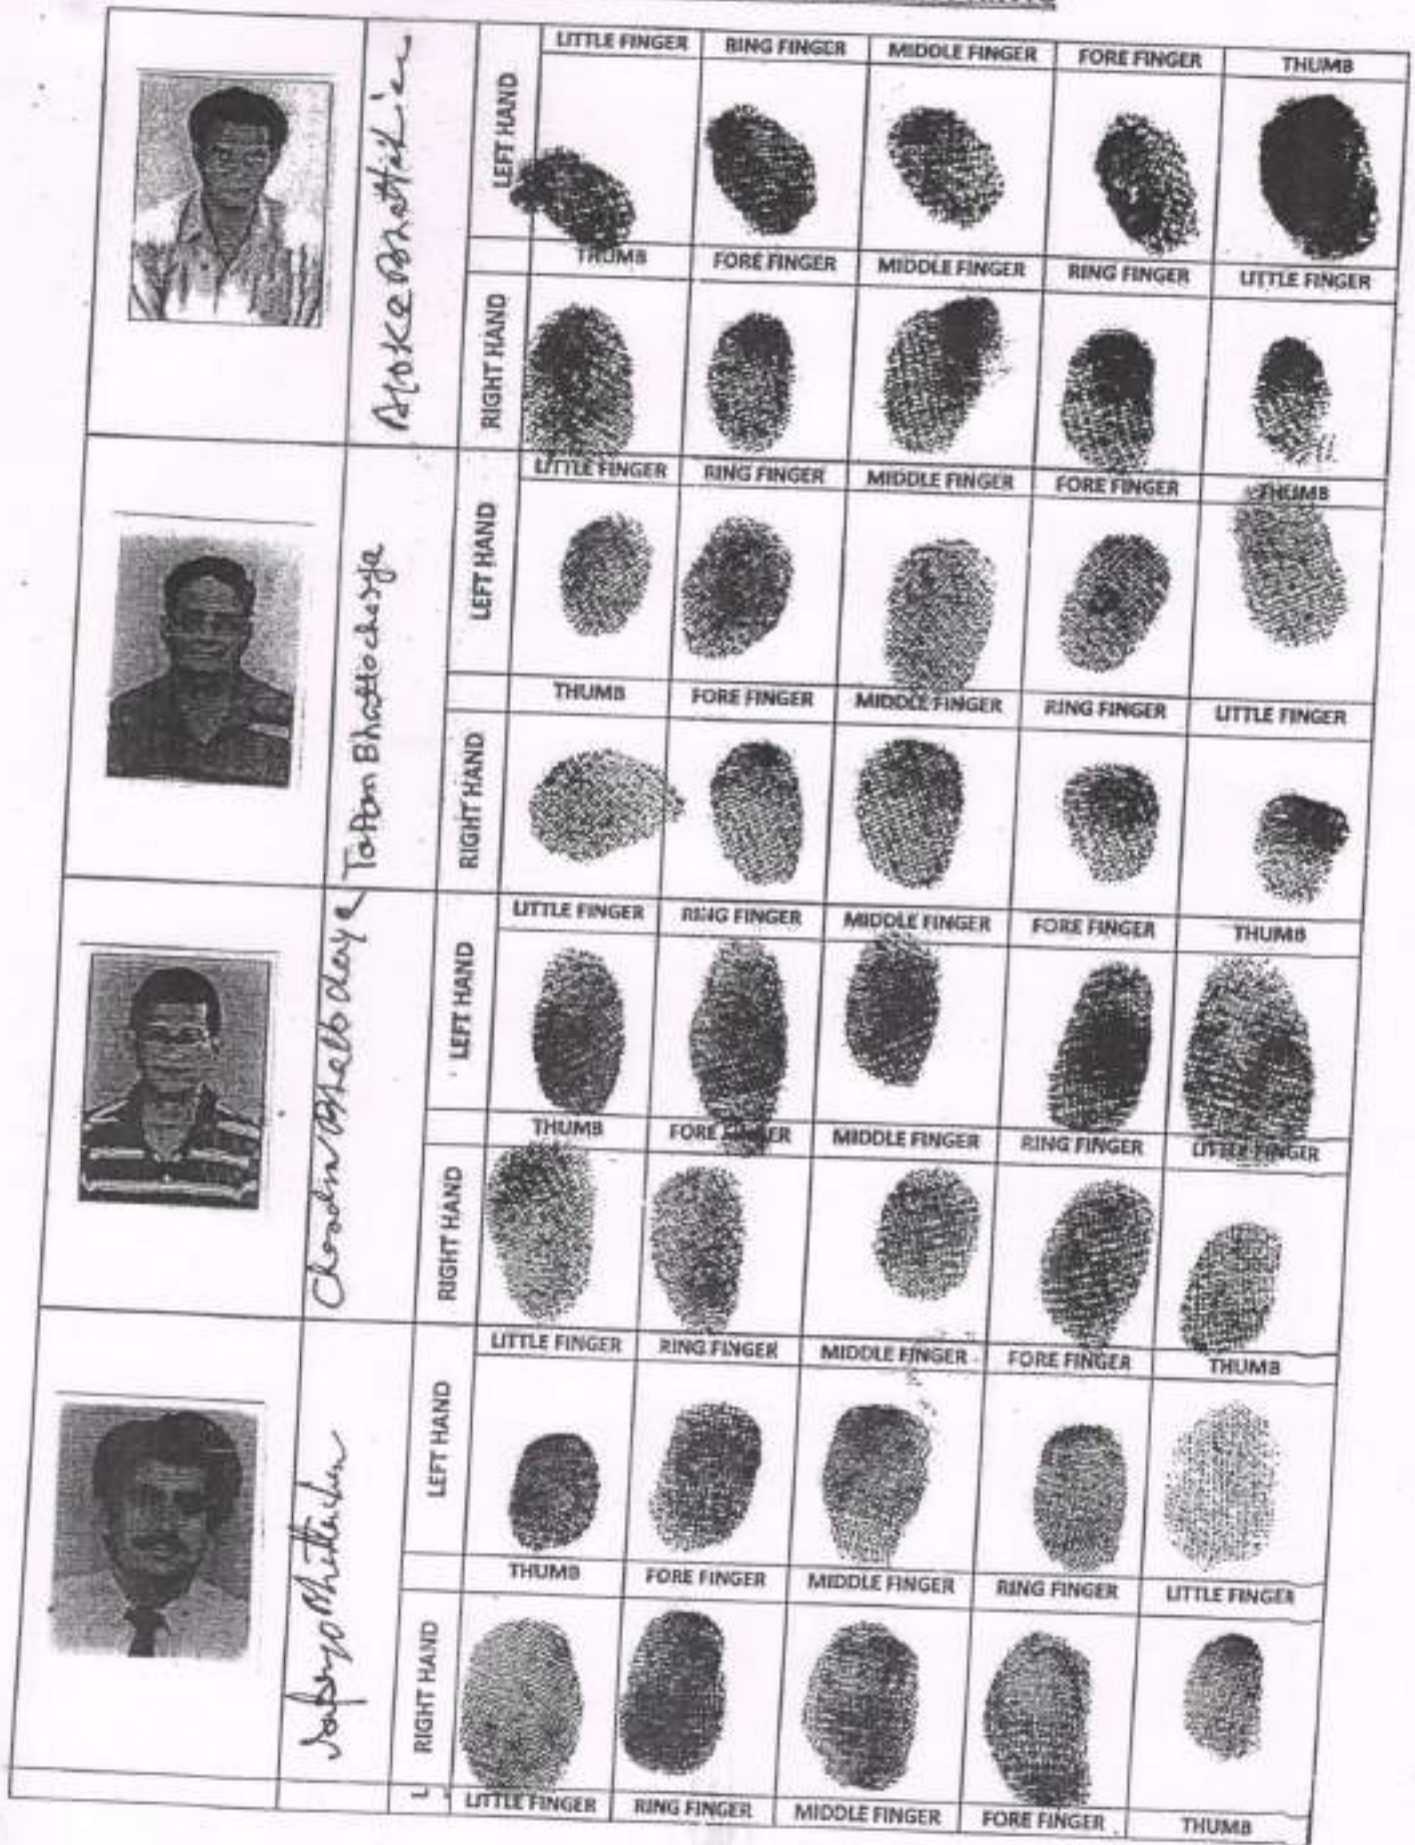 LITTLE FINGER RING FINGER MIDDLE FINGER FORE FINGER THUMB
LEFT HAND
THUMB FORE FINGER MIDDLE FINGER RING FINGER LITTLE FINGER
RIGHT HAND
LITTLE FINGER RING FINGER MIDDLE FINGER FORE FINGER THUMB
Tapan Bhattacharya
LEFT HAND
THUMB FORE FINGER MIDDLE FINGER RING FINGER LITTLE FINGER
RIGHT HAND
LITTLE FINGER RING FINGER MIDDLE FINGER FORE FINGER THUMB
LEFT HAND
THUMB FORE FINGER MIDDLE FINGER RING FINGER LITTLE FINGER
RIGHT HAND
LITTLE FINGER RING FINGER MIDDLE FINGER FORE FINGER THUMB
LEFT HAND
THUMB FORE FINGER MIDDLE FINGER RING FINGER LITTLE FINGER
RIGHT HAND
LITTLE FINGER RING FINGER MIDDLE FINGER FORE FINGER THUMB